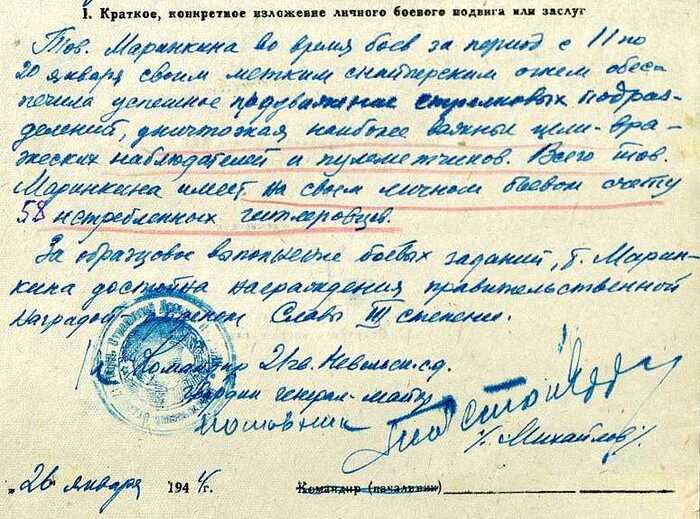 I. Краткое, конкретное изложение личного боевого подвига или заслуг
Тов. Маринкина во время боев за период с 11 по
20 января своим метким снайперским огнем обес-
печила успешное продвижение стрелковых подраз-
делений, уничтожая наиболее важные цели-вра-
жеских наблюдателей и пулеметчиков. Всего тов.
Маринкина имеет на своем личном боевом счету
58 истребленных гитлеровцев.
За образцовое выполнение боевых заданий, т. Марин-
кина достойна награждения правительственной
наградой орденом Славы III степени.
Командир 21 гв. Невельск. с.д.
гвардии генерал-майор
полковник
/Михайлов/
"26 января 1944 г. Командир (начальник)